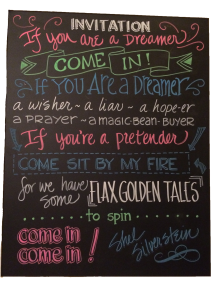 INVITATION
If you are a DReameR
COME IN!
If You Are a Dreamer
a wisher ~ a liar ~ a hope-er
a PRAYER ~ a magic·bean·BUYER
If you're a pretender
COME SIT BY MY FIRE
for we have some FLAX GOLDEN TALES
to spin
come in
come in !
Shel Silverstein